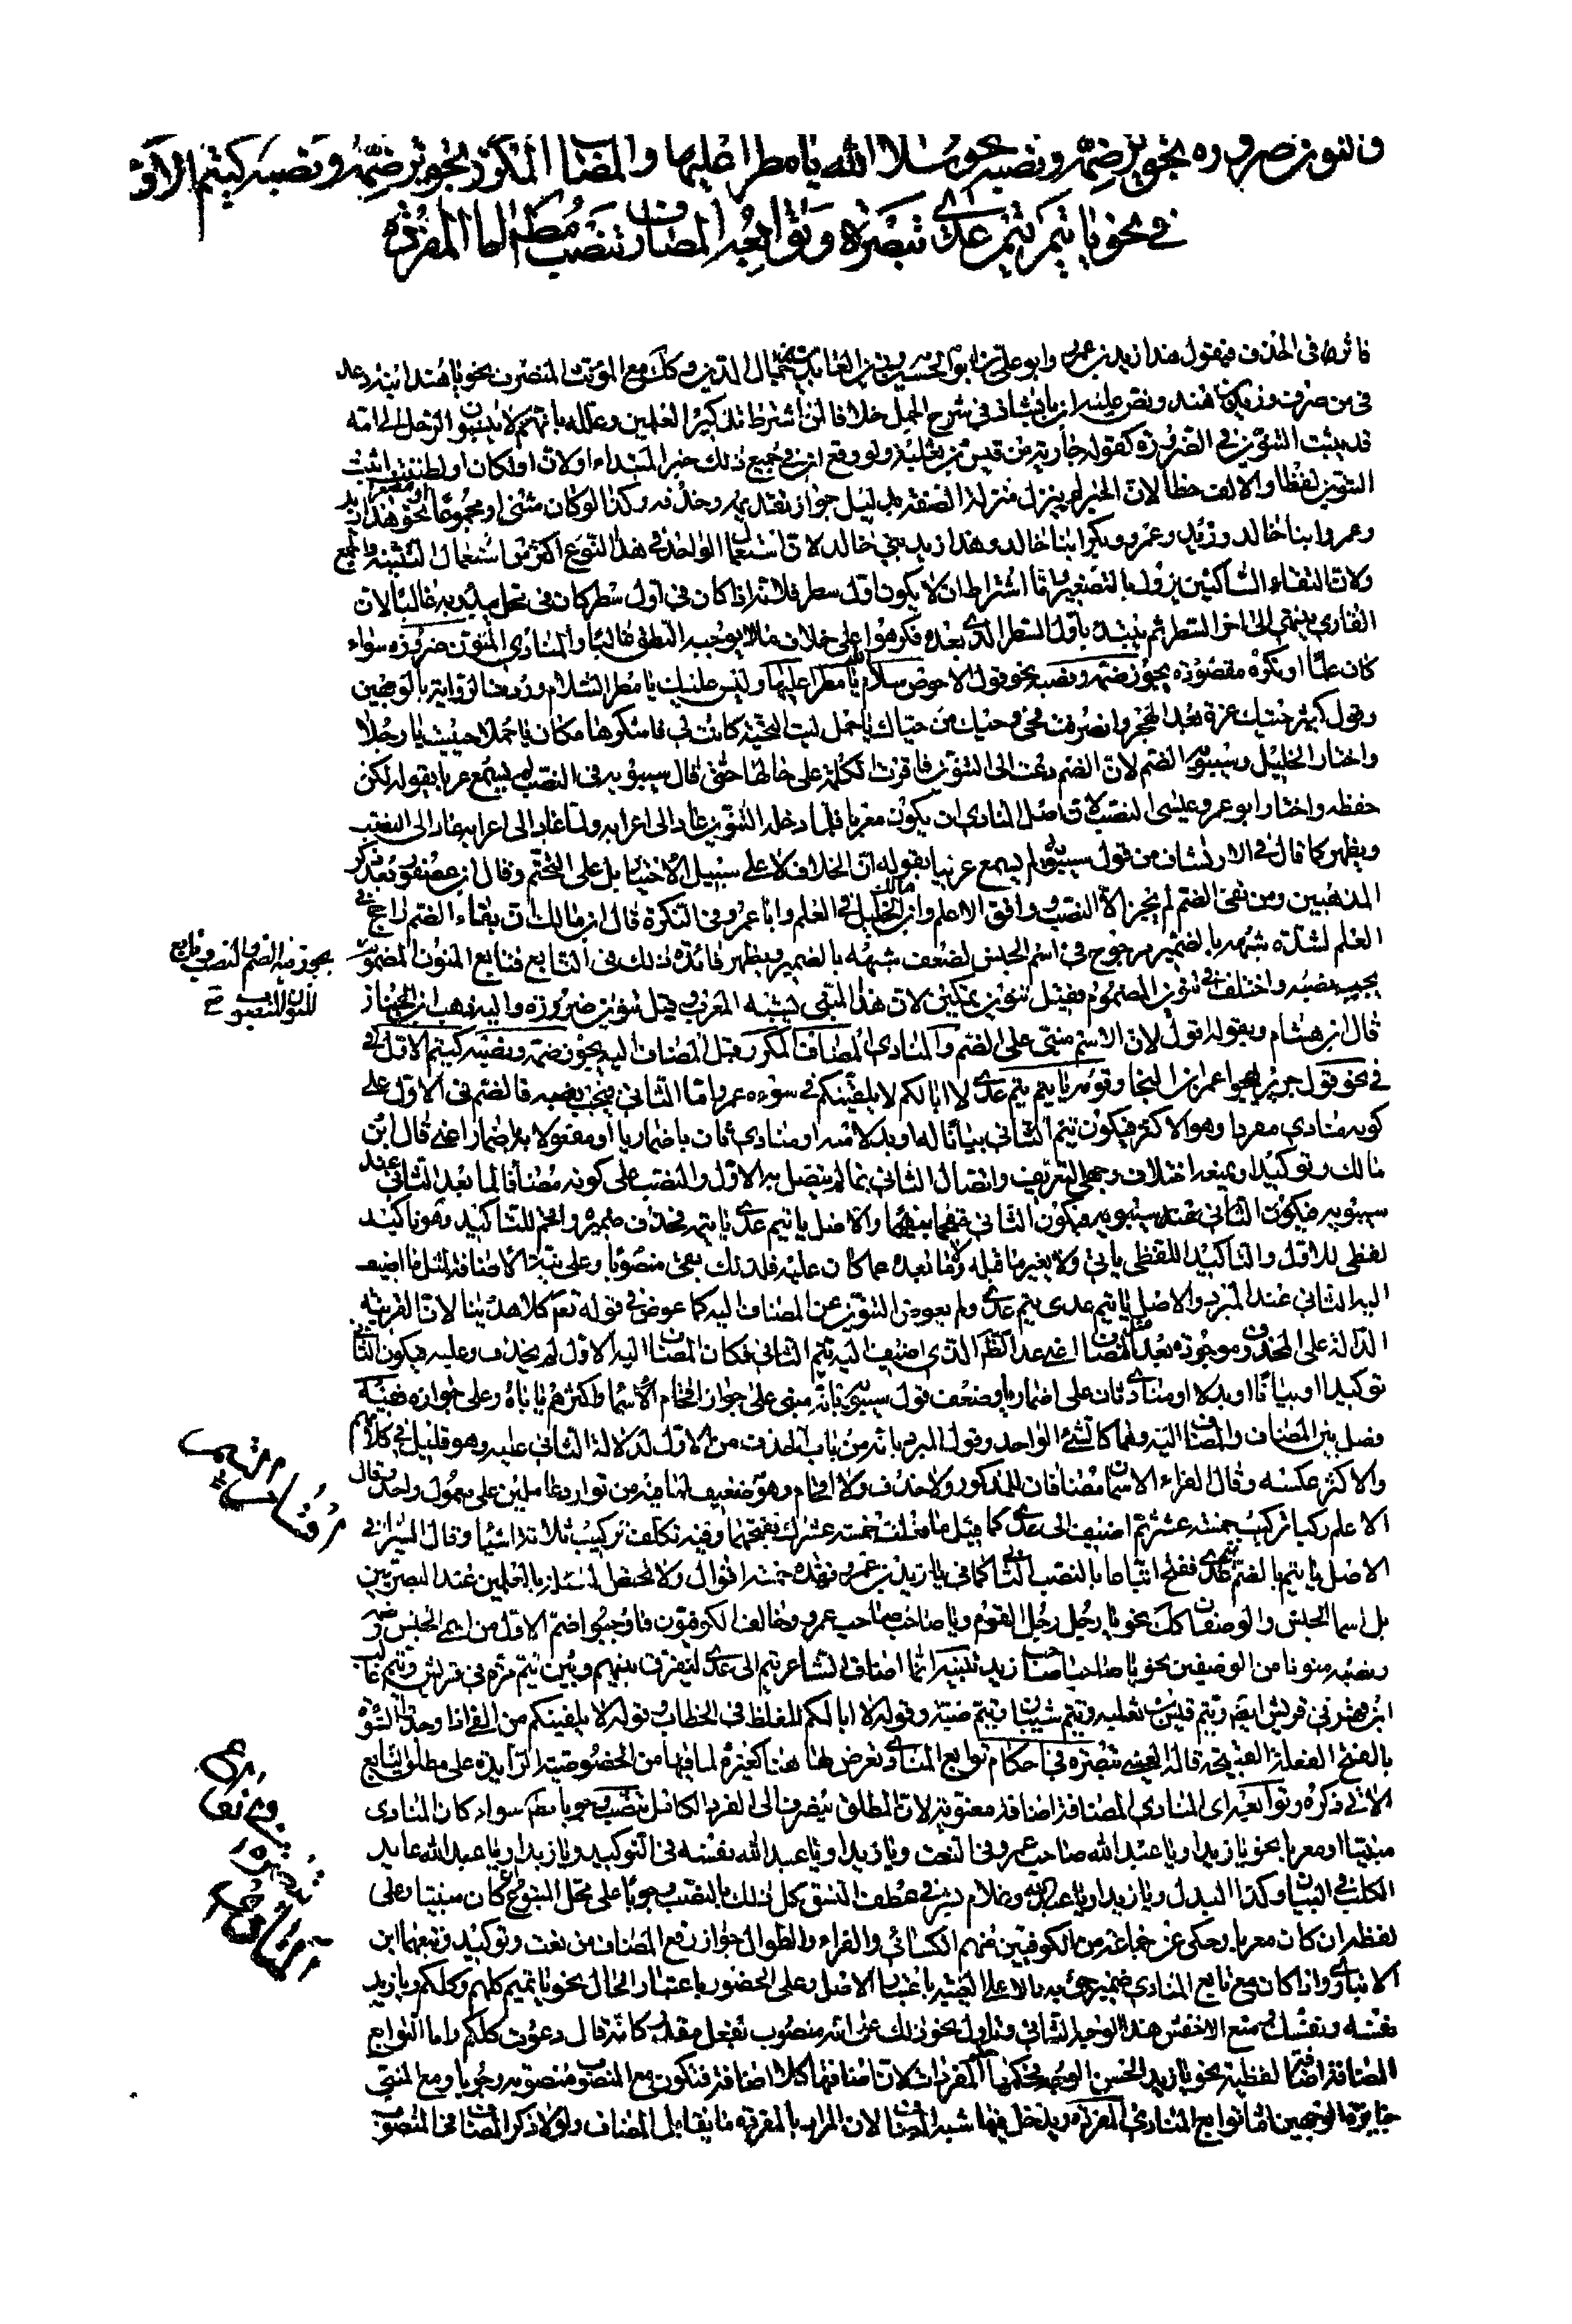 والمنون ضرورة يجوز ضمه ونصبه نحو سلام الله يا مطرا عليها والمضاف المكرر يجوز ضمه ونصبه كتيم الاول
في نحو يا تيم تيم عدي تبصرة وتوابعه المضاف تنصب مطلقا اما المفردة
في الحذف فيقول هذا زيد بن عمرو وابو علي بن ابو الحسين وزين العابدين بن جمال الدين وكذلك مع المؤنث المنصرف نحو يا هند ابنة زيد عند
من صرف وزيد بكر هند ونص عليه ابن بابشاذ في شرح الجمل خلافا لمن اشترط تذكير العلمين وعلله بانهم لا ينسبون الرجل الى امه
قد يثبت التنوين في الضرورة كقوله جارية من قيس بن ثعلبة ولو وقع ابن في جميع ذلك خبر المبتداء او لان او لكان او لظننت اثبت
التنوين لفظا والالف خطا لان الخبر لم ينزل منزلة الصفة بدليل جواز تقديمه وحذفه وكذا لو كان مثنى او مجموعا نحو هذان زيد
وعمرو ابنا خالد وزيد وعمرو وبكر ابنا خالد وهذا زيد بني خالد لان استعمال الواحد في هذا النوع اكثر من استعمال التثنية والجمع
ولان التقاء الساكنين يزول بالتصغير واما اشتراط ان لا يكون اول سطر فلانه اذا كان في اول سطر كان في محل يبتدء به غالبا لان
القاري ينتهي الى اخر السطر ثم يبتدء باول السطر الذي بعده فكرهوا على خلاف ما لا يوجبه النطق غالبا والمنادى المنون ضرورة سواء
كان علما او نكرة مقصودة يجوز ضمه ونصبه نحو قول الاحوص سلام الله يا مطرا عليها وليس عليك يا مطر السلام وردت الرواية بالوجهين
وقول كثير حيتك عزة بعد الهجر وانصرفت فحي ويحك من حياك يا جمل ليت التحية كانت لي فاشكرها مكان يا جملا حييت يا رجلا
واختار الخليل وسيبويه الضم لان الضم دعت الى التنوين فاقرت الكلمة على حالها حتى قال سيبويه في النصب لم يسمع عربيا يقوله لكن
حفظه واختار ابو عمرو وعيسى النصب لان اصل المنادى ان يكون معربا فلما دخله التنوين عاد الى اعرابه ولما عاد الى اعرابه عاد الى النصب
ويظهر كما قال في الارتشاف من قول سيبويه لم يسمع عربيا يقوله ان الخلاف لا على سبيل الاختيار بل على التحتم وقال ابن عصفور بعد ذكر
المذهبين ومن نفى الضم لم يجز الا النصب ووافق الاعلم وابن مالك الخليل في العلم وابا عمرو في النكرة قال ابن مالك ان بقاء الضم راجح في
العلم لشدة شبهه بالضمير مرجوح في اسم الجنس لضعف شبهه بالضمير ويظهر فائدة ذلك في التابع فتابع المنون المضموم
يجوز فيه الضم والنصب وتابع
المنون المنصوب
يجب نصبه واختلف في تنوين المضموم فقيل تنوين تمكين لان هذا المبني يشبه المعرب وقيل تنوين ضرورة واليه ذهب ابن الخباز
قال ابن هشام وبقوله اقول لان الاسم مبني على الضم والمنادى المضاف المكرر قبل المضاف اليه يجوز ضمه ونصبه كتيم الاول في
في نحو قول جرير يهجو عمر بن لجا وقومه يا تيم تيم عدي لا ابا لكم لا يلقينكم في سوءة عمر واما الثاني فيجب نصبه فالضم في الاول على
كونه منادى مفردا وهو الاكثر فيكون تيم الثاني بيانا له او بدلا منه او منادى ثان باضمار يا او مفعولا به باضمار اعني قال ابن
مالك وتوكيدا ويمنعه اختلاف وجهي التعريف واتصال الثاني بما لم يتصل به الاول والنصب على كونه مضافا لما بعد الثاني عند
سيبويه فيكون الثاني عند سيبويه مقحما بينهما والاصل يا تيم عدي يا تيمه فحذف ضميره واقحم للتاكيد وهو تاكيد
لفظي للاول والتاكيد اللفظي ياتي ولا يغير ما قبله ولا ما بعده عما كان عليه فلذلك بقي منصوبا وعلى نية الاضافة لمثل ما اضيف
اليه الثاني عند المبرد والاصل يا تيم عدي تيم عدي ولم يعوض التنوين عن المضاف اليه كما عوض في قوله تعالى كلا هدينا لان القرينة
الدالة على المحذوف موجودة بعد المضاف اعني عدي الظاهر الذي اضيف اليه تيم الثاني فكان المضاف اليه الاول لم يحذف وعليه فيكون الثاني
توكيدا او بيانا او بدلا او منادى ثان على اضمار يا وضعف قول سيبويه بانه مبني على جواز اقحام الاسماء واكثرهم ياباه وعلى جوازه ففيه
فصل بين المضاف والمضاف اليه وهما كالشيء الواحد وقول المبرد بانه من باب الحذف من الاول لدلالة الثاني عليه وهو قليل في كلامهم
والاكثر عكسه وقال الفراء الاسمان مضافان للمذكور ولا حذف ولا اقحام وهو ضعيف لما فيه من توارد عاملين على معمول واحد وقال
الاعلم ركبا تركيب خمسة عشر ثم اضيف الى عدي كما قيل ما فعلت خمسة عشرك ففتحتهما وفيه تكلف تركيب ثلاثة اشياء وقال السيرافي
الاصل يا تيم بالضم تيم عدي ففتح اتباعا بالنصب الثاني كما في يا زيد بن عمرو فهذه خمسة اقوال ولا تختص المسئلة بالعلمين عند البصريين
بل اسما الجنس والوصفان كذلك نحو يا رجل رجل القوم ويا صاحب صاحب عمرو وخالف الكوفيون فاوجبوا ضم الاول من اسمي الجنس ضمه
ونصبه منونا من الوصفين نحو يا صاحبا صاحب زيد تنبيه انما اضاف الشاعر تيم الى عدي لتفرق بينهم وبين تيم مرة في قريش وتيم غالب
ابن فهر في قريش ايضا وتيم قيس بن ثعلبة وتيم شيبان وتيم ضبة وقوله لا ابا لكم للغلظ في الخطاب قوله لا يلقينكم من الفى اذا وجد والسوءة
بالفتح الفعلة القبيحة قاله العيني تبصرة في احكام توابع المنادى وتعرض لها هنا كغيره لما فيها من الخصوصية الزايدة على مطلق التابع
الاتي ذكره وتوابعه اي المنادى المضافة اضافة معنوية لان المطلق ينصرف الى الفرد الكامل تنصب وجوبا مطلقا سواء كان المنادى
مبنيا او معربا نحو يا زيد او يا عبد الله صاحب عمرو في النعت ويا زيد او يا عبد الله نفسه في التوكيد ويا زيد او يا عبد الله عايد
الكلب في البيان وكذا البدل ويا زيد او يا عبد الله وغلام بشر في عطف النسق كل ذلك بالنصب وجوبا على محل المتبوع ان كان مبنيا وعلى
لفظه ان كان معربا وحكى عن جماعة من الكوفيين منهم الكسائي والفراء والطوال جواز رفع المضاف من نعت وتوكيد وتبعهما ابن
الانباري واذا كان مع تابع المنادى ضمير جيء به دالا على الغيبة باعتبار الاصل وعلى الحضور باعتبار الحال نحو يا تميم كلهم وكلكم ويا زيد
نفسه ونفسك ومنع الاخفش هذا الوجه الثاني وتاول نحو ذلك على انه منصوب بفعل مقدر كانه قال دعوت كلكم واما التوابع
المضافة اضافة لفظية نحو يا زيد الحسن الوجه فحكمها حكم المفرد لان اضافتها كلا اضافة فتكون مع المنصوب منصوبه وجوبا ومع المبني
جايزة الوجهين اما توابع المنادى المفردة ويدخل فيها شبه المضاف لان المراد بالمفردة ما يقابل المضاف ولولا ذكر المضاف في المنصوب